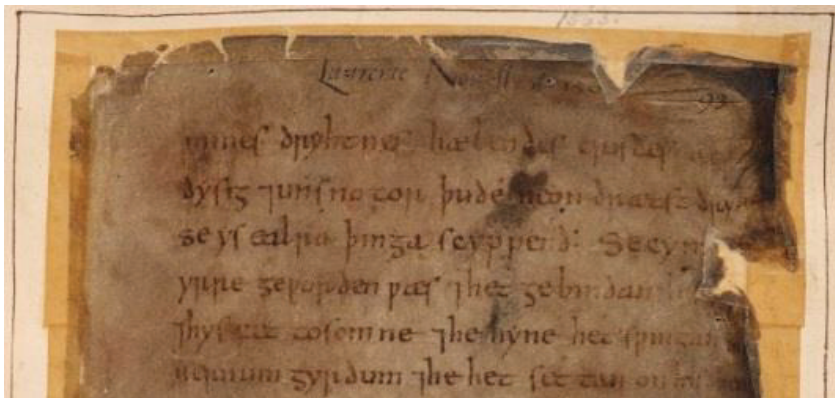 1563.
Laurence Nouell
99
mines dryhtnes hælendes cristes
dysig ⁊ unsnotor þu dryh
se ys ealra þinga scyppend: Se cyn
yrre geƿorden ƿæs ⁊ het gebindan
⁊ hys fet tosomne ⁊ he hyne het sƿingan
gyrdum ⁊ he het settan on his